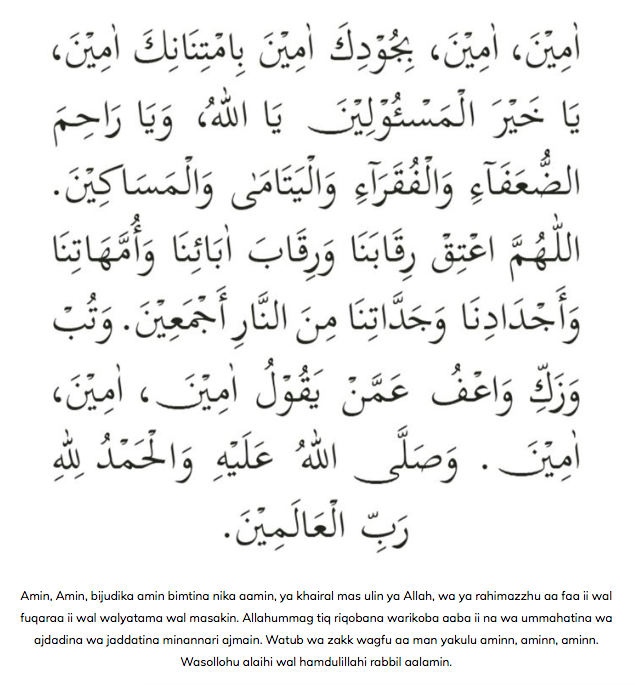 اٰمِيْنَ، اٰمِيْنَ، بِجُوْدِكَ اٰمِيْنَ بِامْتِنَانِكَ اٰمِيْنَ،
يَا خَيْرَ الْمَسْئُوْلِيْنَ يَا اللهُ، وَيَا رَاحِمَ
الضُّعَفَآءِ وَالْفُقَرَآءِ وَالْيَتَامَى وَالْمَسَاكِيْنَ.
اللّٰهُمَّ اعْتِقْ رِقَابَنَا وَرِقَابَ اٰبَائِنَا وَأُمَّهَاتِنَا
وَأَجْدَادِنَا وَجَدَّاتِنَا مِنَ النَّارِ أَجْمَعِيْنَ. وَتُبْ
وَزَكِّ وَاعْفُ عَمَّنْ يَقُوْلُ اٰمِيْنَ، اٰمِيْنَ،
اٰمِيْنَ. وَصَلَّى اللهُ عَلَيْهِ وَالْحَمْدُ لِلّٰهِ
رَبِّ الْعَالَمِيْنَ.
Amin, Amin, bijudika amin bimtina nika aamin, ya khairal mas ulin ya Allah, wa ya rahimazzhu aa faa ii wal
fuqaraa ii wal walyatama wal masakin. Allahummag tiq riqobana warikoba aaba ii na wa ummahatina wa
ajdadina wa jaddatina minannari ajmain. Watub wa zakk wagfu aa man yakulu aminn, aminn, aminn.
Wasollohu alaihi wal hamdulillahi rabbil aalamin.